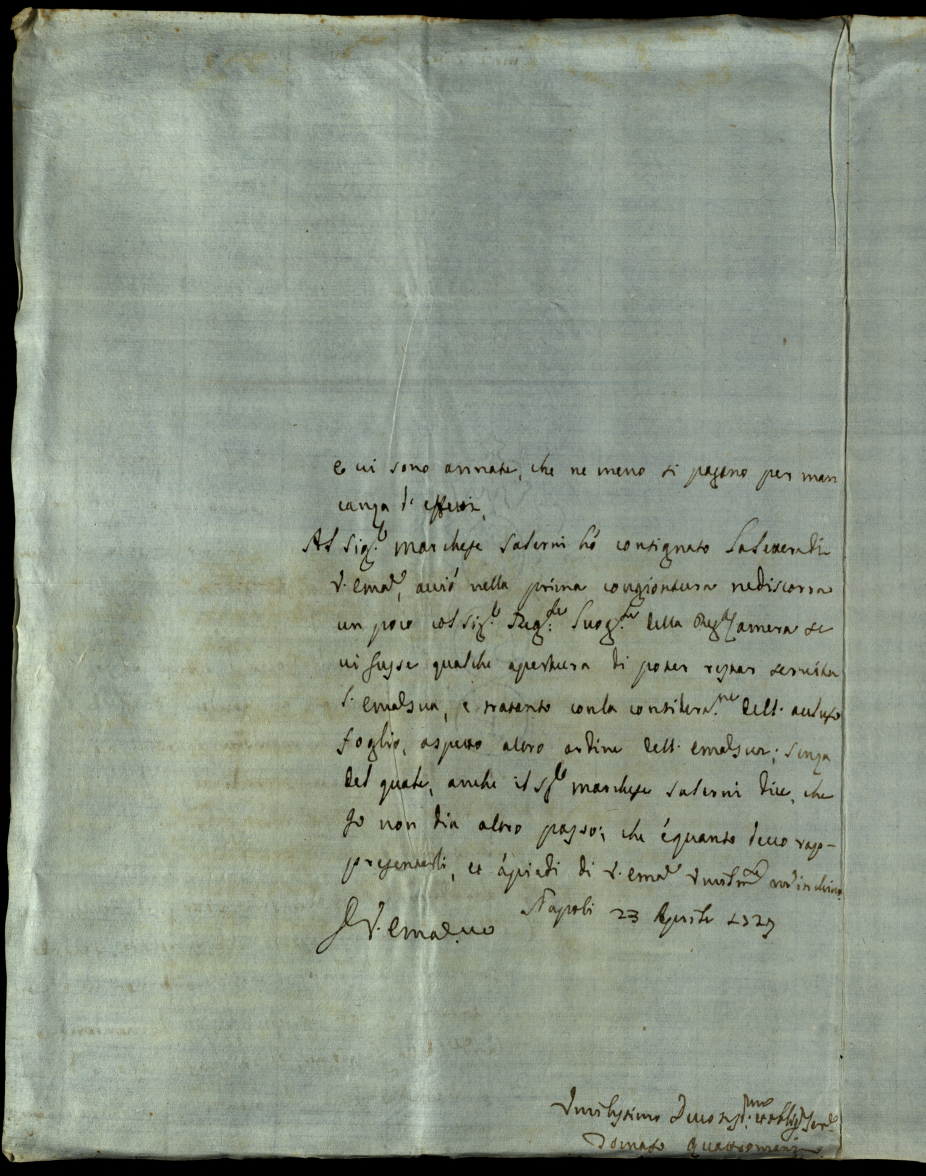 e vi sono annate, che ne meno si pagano per man
canza d' effetti,
Al Sig.re Marchese Salerni hò consignato la lettera di
V. Em.a, acciò nella prima congiontura ne discorra
un poco col Sig.re Regg.te Luog.te della Reg.l Camera se
vi fusse qualche apertura di poter restar servita
S. Em.a Sua, e trattanto con la considera.ne dell' accluso
foglio, aspetto altro ordine dell' Em.a Sua; senza
del quale, anche il S.re Marchese Salerni dice, che
Io non dia altro passo; che é quanto devo rap-
presentarli, et á piedi di V. Em.a Umilm.te m'inchino
Napoli 23 Agosto 1729
D V. Em.a
Umilissimo Devotiss.mo et oblig.mo Ser.re
Donato Quattromani